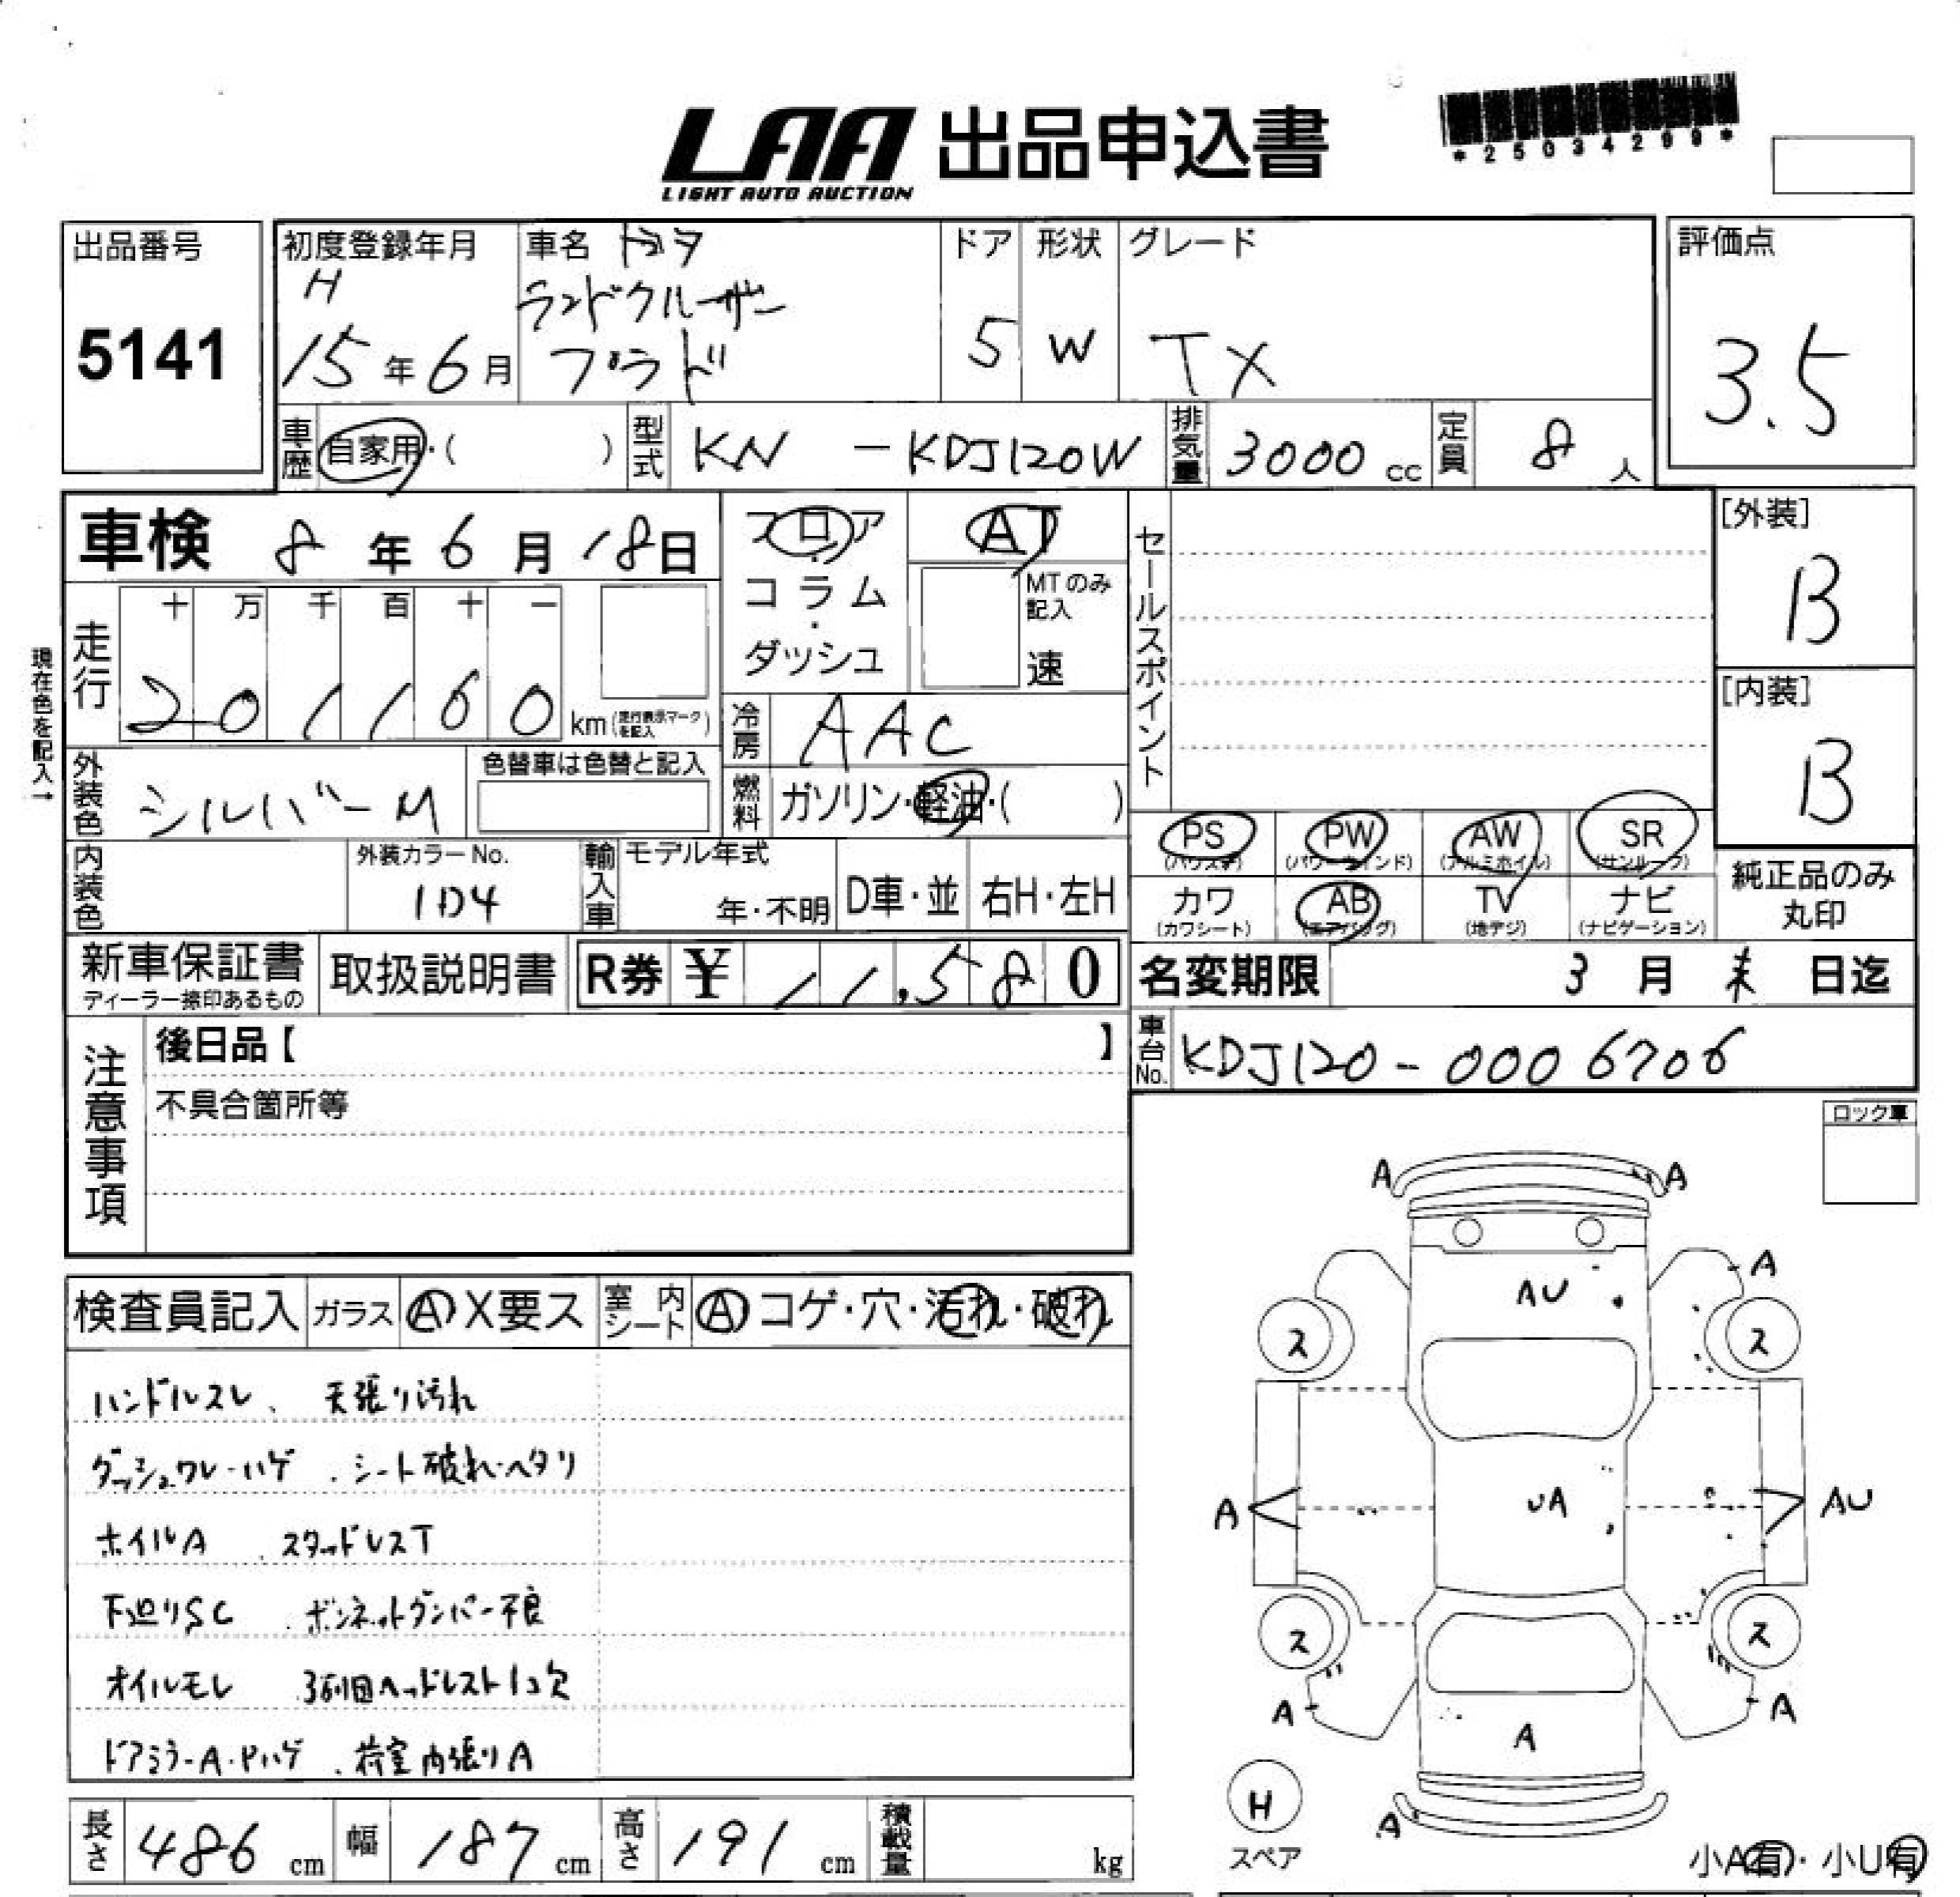 LAA 出品申込書
LIGHT AUTO AUCTION
*25034299*
出品番号
5141
初度登録年月
H
15年6月
車名 トヨタ
ランドクルーザー
プラド
ドア
5
形状
W
グレード
TX
評価点
3.5
車歴 自家用・( )
型式 KN - KDJ120W
排気量 3000 cc
定員 8 人
車検 8年6月18日
フロア
・
コラム
・
ダッシュ
AT
MTのみ
記入
速
セールスポイント
[外装]
B
[内装]
B
現在色を記入→
走行
十 万 千 百 十 一
2 0 1 1 6 0 km (走行表示マークを記入)
冷房 AAC
外装色 シルバーM
色替車は色替と記入
燃料 ガソリン・軽油・( )
PS (パワステ)
PW (パワーウインド)
AW (アルミホイル)
SR (サンルーフ)
カワ (カワシート)
AB (エアバッグ)
TV (地デジ)
ナビ (ナビゲーション)
純正品のみ
丸印
内装色
外装カラーNo.
1D4
輸入車
モデル年式
年・不明
D車・並
右H・左H
新車保証書
ディーラー捺印あるもの
取扱説明書
R券 ¥ 11,580
名変期限 3月末日迄
車台No. KDJ120-0006706
注意事項
後日品【 】
不具合箇所等
ロック車
検査員記入
ガラス A X要ス
室内シート A コゲ・穴・汚れ・破れ
ハンドルスレ、 天張り汚れ
ダッシュワレ・ハゲ . シート破れ・ヘタリ
ホイルA . スタッドレスT
下廻りSC . ボンネットダンパー不良
オイルモレ . 3列目ヘッドレスト1コ欠
ドアミラーA・Pハゲ . 荷室内張りA
A A
AU A
ス ス
A UA AU
ス ス
A A A
H
スペア
A
小A有・小U有
長さ 486 cm
幅 187 cm
高さ 191 cm
積載量 kg